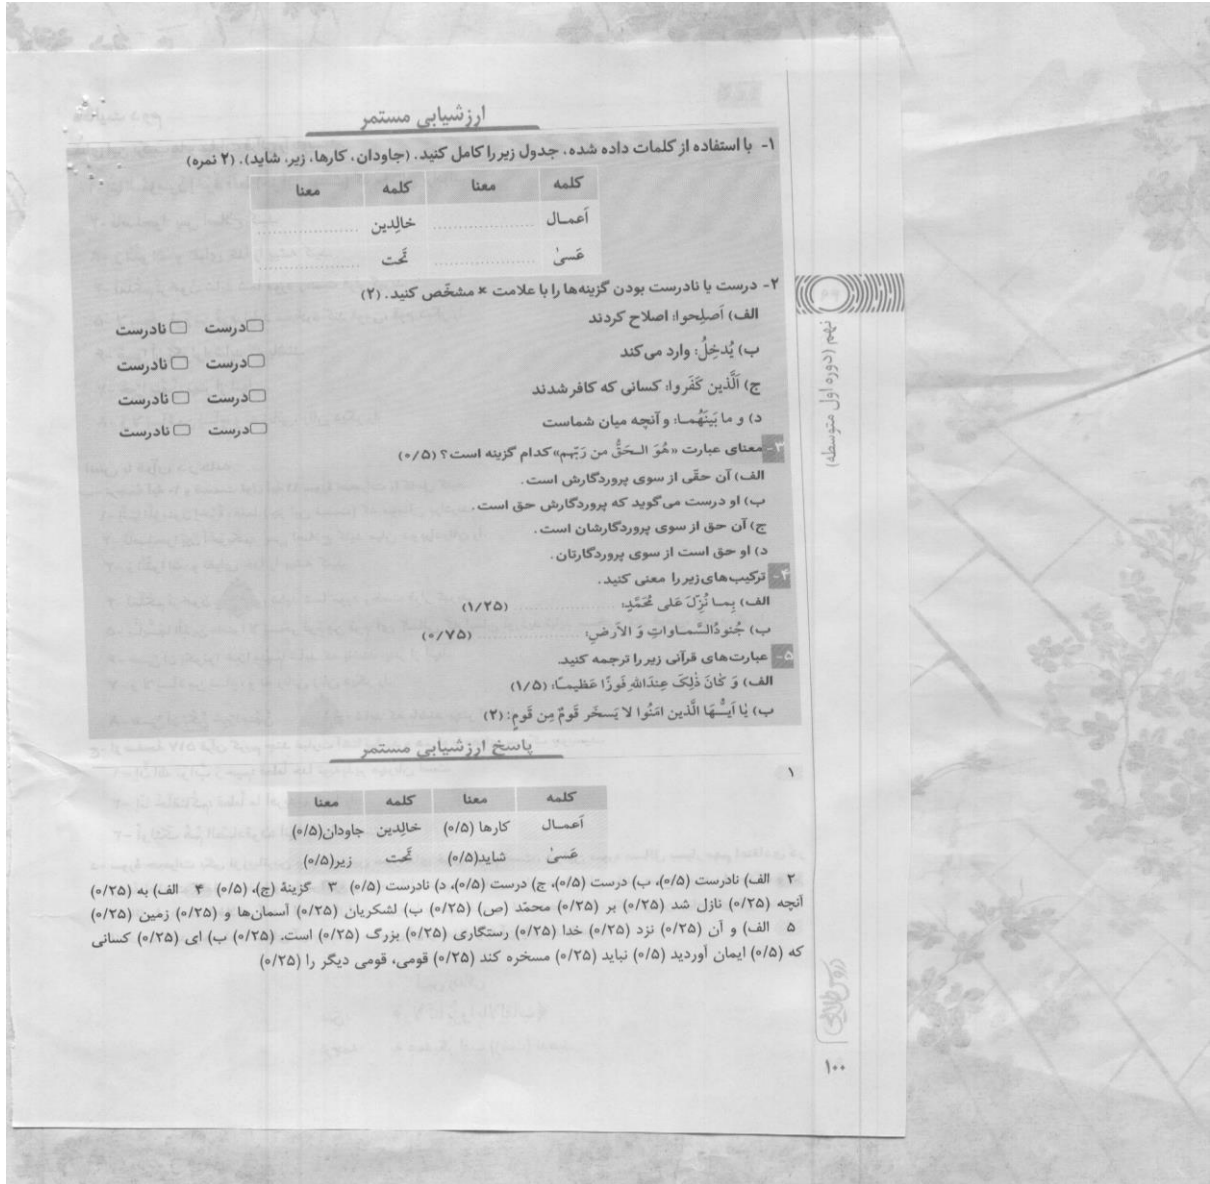 ارزشیابی مستمر
۱- با استفاده از کلمات داده شده، جدول زیر را کامل کنید. (جاودان، کارها، زیر، شاید). (۲ نمره)
کلمه معنا کلمه معنا
أعمـال .................... خالِدین ....................
عَسیٰ .................... تَحت ....................
۲- درست یا نادرست بودن گزینه‌ها را با علامت × مشخّص کنید. (۲)
الف) اَصلِحوا: اصلاح کردند □درست □نادرست
ب) یُدخِلُ: وارد می‌کند □درست □نادرست
ج) اَلَّذین کَفَروا: کسانی که کافر شدند □درست □نادرست
د) و ما بَینَهُمـا: و آنچه میان شماست □درست □نادرست
۳- معنای عبارت «هُوَ الـحَقُّ من رَبِّهم» کدام گزینه است؟ (۰/۵)
الف) آن حقّی از سوی پروردگارش است.
ب) او درست می‌گوید که پروردگارش حق است.
ج) آن حق از سوی پروردگارشان است.
د) او حق است از سوی پروردگارتان.
۴- ترکیب‌های زیر را معنی کنید.
الف) بِمـا نُزِّلَ عَلی مُحَمَّدٍ: .................... (۱/۲۵)
ب) جُنودُالسَّمـاواتِ وَ الاَرضِ: .................... (۰/۷۵)
۵- عبارت‌های قرآنی زیر را ترجمه کنید.
الف) وَ کٰانَ ذٰلِکَ عِندَاللهِ فَوزًا عَظیمـًا: (۱/۵)
ب) یٰا اَیـُّهَا الَّذین امَنُوا لا یَسخَر قَومٌ مِن قَومٍ: (۲)
پاسخ ارزشیابی مستمر
۱
کلمه معنا کلمه معنا
أعمـال کارها (۰/۵) خالِدین جاودان(۰/۵)
عَسیٰ شاید(۰/۵) تَحت زیر(۰/۵)
۲ الف) نادرست (۰/۵)، ب) درست (۰/۵)، ج) درست (۰/۵)، د) نادرست (۰/۵) ۳ گزینهٔ (ج)، (۰/۵) ۴ الف) به (۰/۲۵)
آنچه (۰/۲۵) نازل شد (۰/۲۵) بر (۰/۲۵) محمّد (ص) (۰/۲۵) ب) لشکریان (۰/۲۵) آسمان‌ها و (۰/۲۵) زمین (۰/۲۵)
۵ الف) و آن (۰/۲۵) نزد (۰/۲۵) خدا (۰/۲۵) رستگاری (۰/۲۵) بزرگ (۰/۲۵) است. (۰/۲۵) ب) ای (۰/۲۵) کسانی
که (۰/۵) ایمان آوردید (۰/۵) نباید (۰/۲۵) مسخره کند (۰/۲۵) قومی، قومی دیگر را (۰/۲۵)
نهم (دوره اول متوسطه)
دروس طلایی
۱۰۰